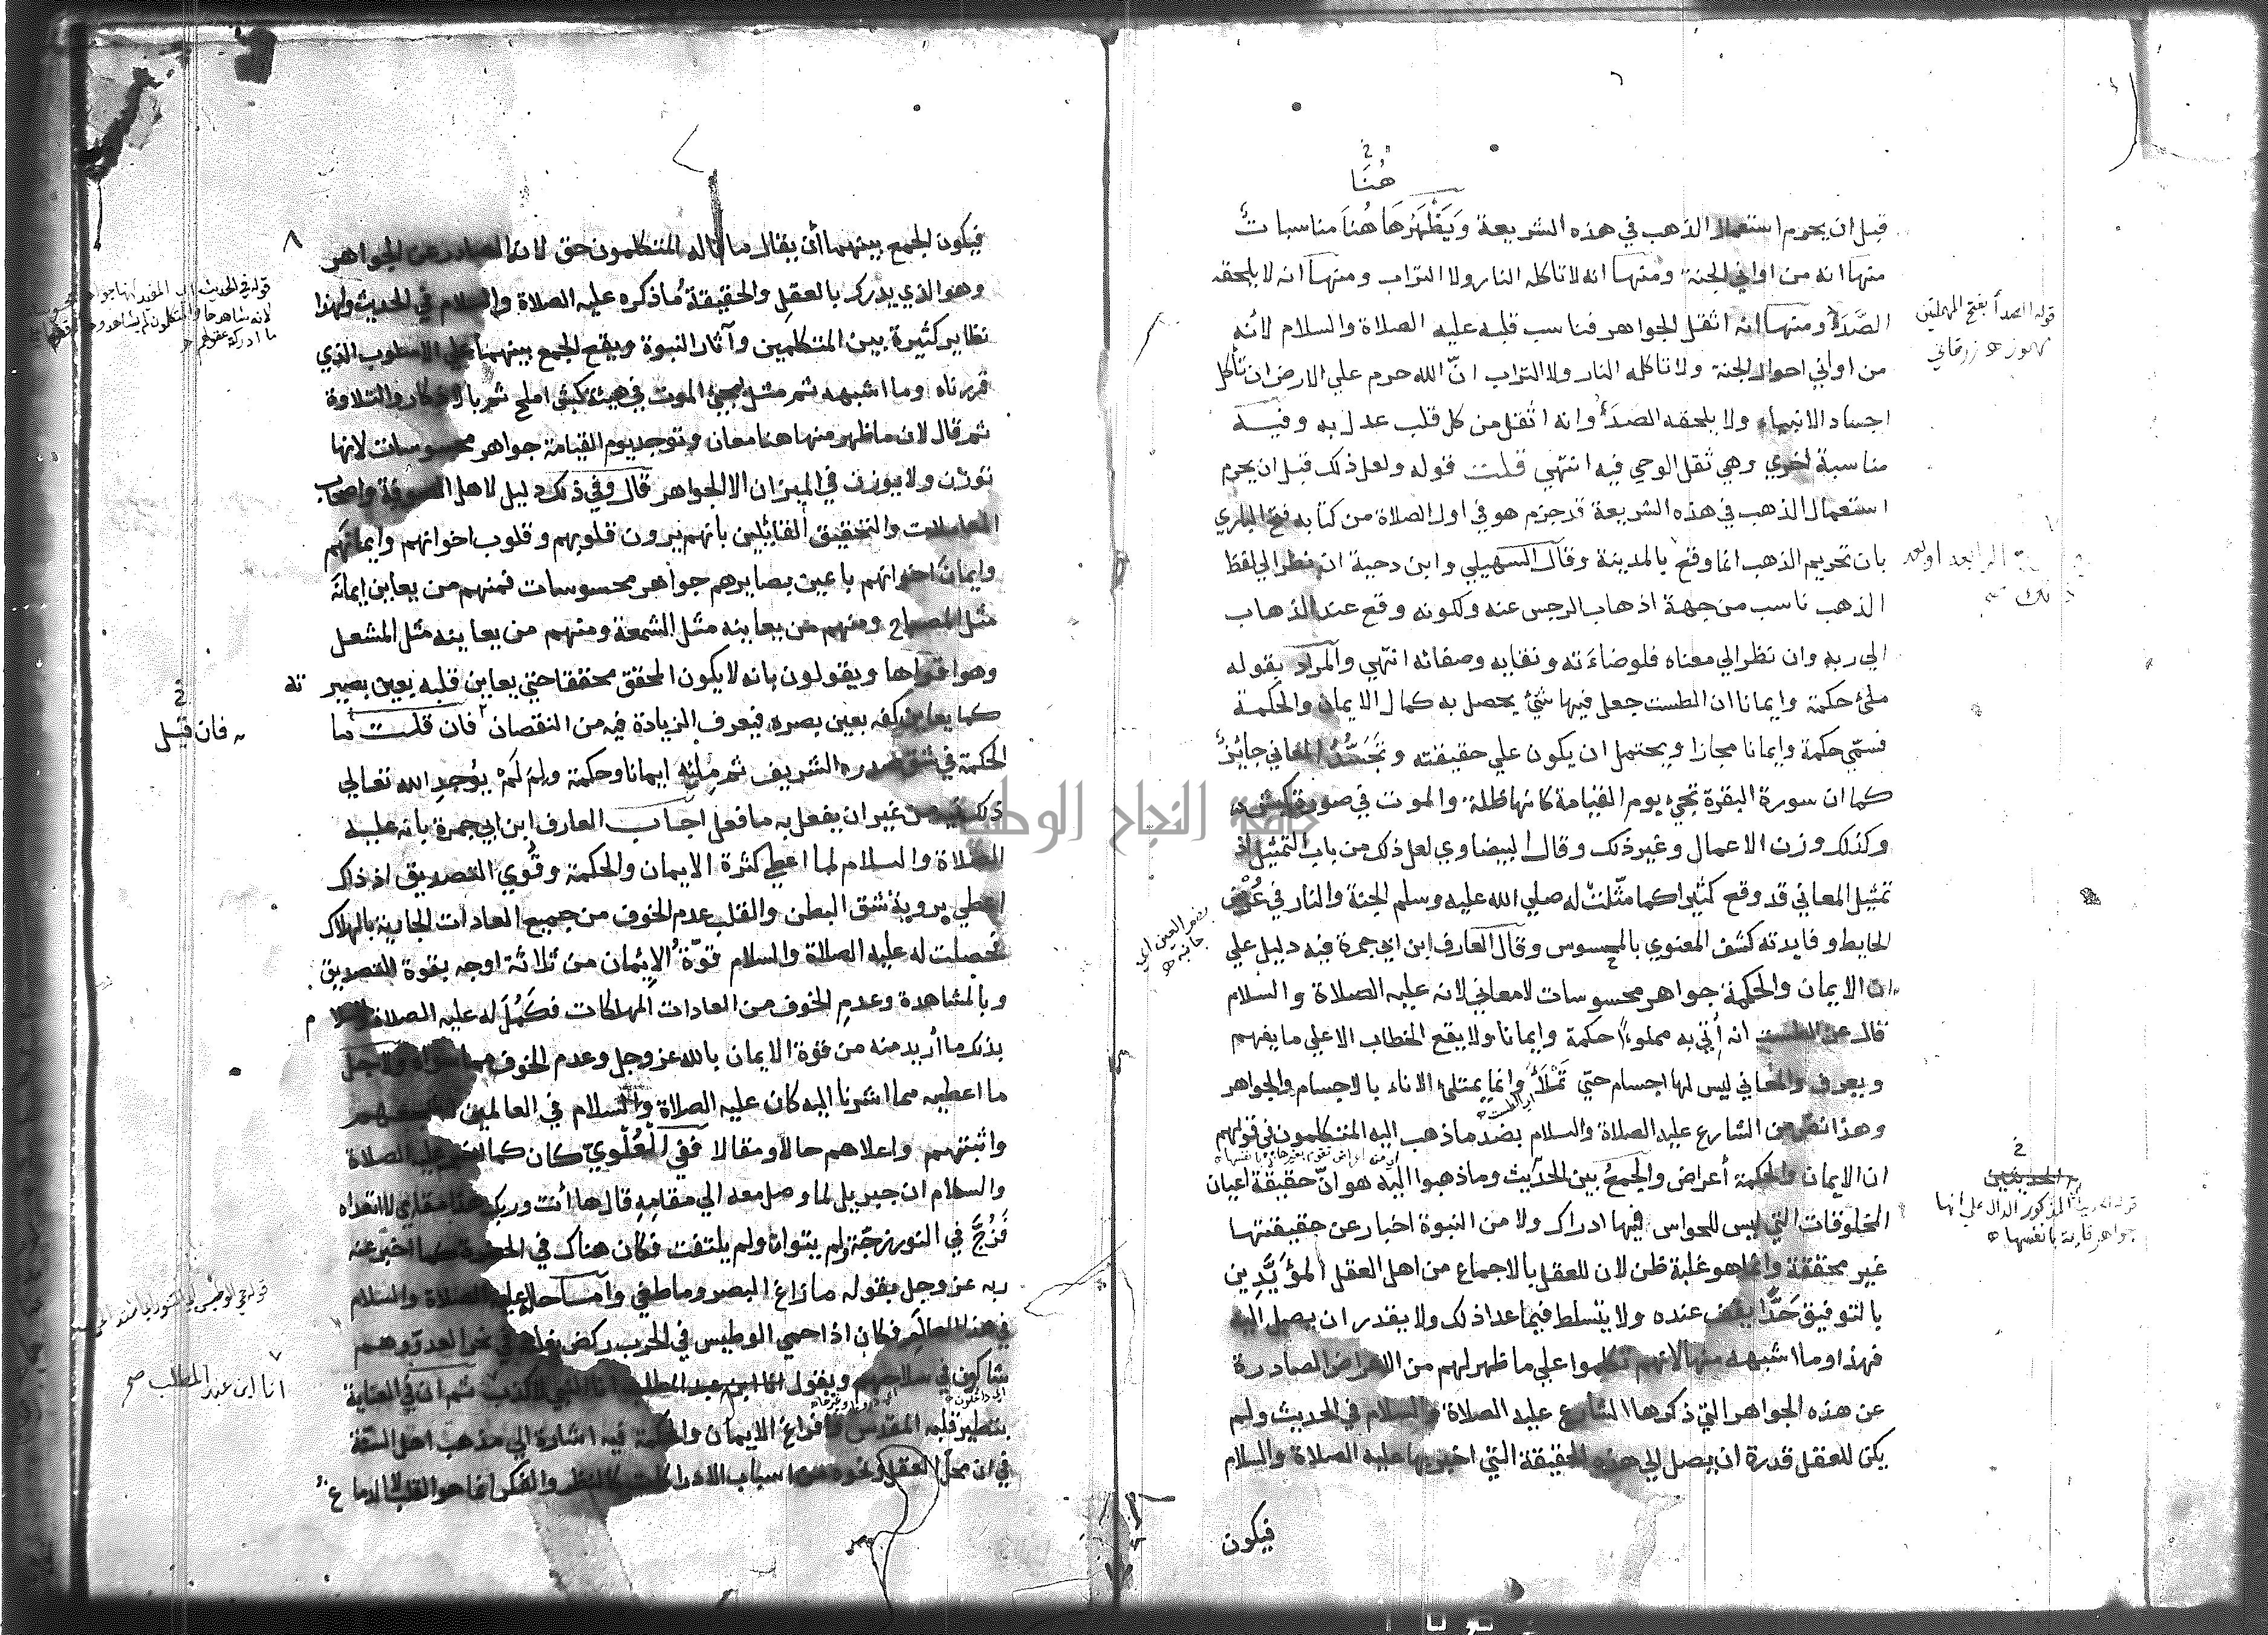 هُنَا
قبل ان يحرم استعمال الذهب في هذه الشريعة وَيَظْهَرُ هَا هُنَا مناسبات
منها انه من اواني الجنة ومنها انه لا تاكله النار ولا التراب ومنها انه لا يلحقه
الصَّدَأ ومنها انه اثقل الجواهر فناسب قلبه عليه الصلاة والسلام لأنه
من اواني احوال الجنة ولا تاكله النار ولا التراب انّ الله حرم علي الارض ان تأكل
اجساد الانبياء ولا يلحقه الصدَأ وانه اثقل من كل قلب عدل به وفيه
مناسبة اخري وهي ثقل الوحي فيه انتهي قلت قوله ولعل ذلك قبل ان يحرم
استعمال الذهب في هذه الشريعة قد جزم هو في اول الصلاة من كتابه فتح الباري
بان تحريم الذهب انما وقع بالمدينة وقال السهيلي وابن دحية ان نظر الي لفظ
الذهب ناسب من جهة اذهاب الرجس عنه ولكونه وقع عند الذهاب
الي ربه وان نظر الي معناه فلوضاءَته ونقايه وصفائه انتهي والمراد بقوله
ملئ حكمة وايمانا ان الطست جعل فيها شئ يحصل به كمال الايمان والحكمة
فسمّي حكمة وايمانا مجازا ويحتمل ان يكون علي حقيقته وتَجَسُّدُ المعاني جايزٌ
كما ان سورة البقرة تجيء يوم القيامة كانها ظلة والموت في صورة كبش
وكذلك وزن الاعمال وغير ذلك وقال البيضاوي لعل ذلك من باب التمثيل اذ
تمثيل المعاني قد وقع كثيرا كما مثّلتْ له صلي الله عليه وسلم الجنة والنار في عُرْض
الحايط وفايدته كشف المعنوي بالمحسوس وقال العارف ابن ابي جمرة فيه دليل علي
ان الايمان والحكمة جواهر محسوسات لا معاني لانه عليه الصلاة والسلام
قال عن الطست انه أتي به مملوءا حكمة وايمانا ولا يقع الخطاب الا علي ما يفهم
ويعرف والمعاني ليس لها اجسام حتي تَمْلَأَ وانما يمتلئ الاناء بالاجسام والجواهر
وهذا نص من الشارع عليه الصلاة والسلام بضد ما ذهب اليه المتكلمون في قولهم
ان الايمان والحكمة أعراض والجمعُ بين الحديث وما ذهبوا اليه هو انّ حقيقة اعيان
المخلوقات التي ليس للحواس فيها ادراك ولا من النبوة اخبار عن حقيقتها
غير محققة وانما هو غلبة ظن لان للعقل بالاجماع من اهل العقل المؤيَّدِين
بالتوفيق حَدًّا يقف عنده ولا يتسلط فيما عدا ذلك ولا يقدر ان يصل اليه
فهذا وما اشبهه منها لانهم تكلموا علي ما ظهر لهم من الاعراض الصادرة
عن هذه الجواهر التي ذكرها الشارع عليه الصلاة والسلام في الحديث ولم
يكن للعقل قدرة ان يصل الي هذه الحقيقة التي اخبر بها عليه الصلاة والسلام
فيكون
قوله الصدأ بفتح المهملتين
مهموز زرقاني
بضم العين اي
جانبه
المذكور الدال علي انها
جواهر قايمة بانفسها
٨
فيكون الجمع بينهما أن يقال ما قاله المتكلمون حق لان الصادر عن الجواهر
وهو الذي يدرك بالعقل والحقيقة ما ذكره عليه الصلاة والسلام في الحديث ولهذا
نظاير كثيرة بين المتكلمين وآثار النبوة ويقع الجمع بينهما علي الاسلوب الذي
قررناه وما اشبهه ثم مثل بمجئ الموت في هيئة كبش املح ثم بالاذكار والتلاوة
ثم قال لان ما ظهر منها هنا معان وتوجد يوم القيامة جواهر محسوسات لانها
توزن ولا يوزن في الميزان الا الجواهر قال وفي ذلك دليل لاهل الصوفة واصحاب
المعاملات والتحقيق القائلين بانهم يرون قلوبهم وقلوب اخوانهم وايمانَهم
وايمانَ اخوانهم باعين بصايرهم جواهر محسوسات فمنهم من يعاين ايمانَه
مثل المصباح ومنهم من يعاينه مثل الشمعة ومنهم من يعاينه مثل المشعل
وهو اقواها ويقولون بانه لا يكون المحقق محققا حتي يعاين قلبه بعين بصيرته
كما يعاين كفه بعين بصره فيعرف الزيادة فيه من النقصان فان قلت ما
الحكمة في شق صدره الشريف ثم مِلئِه ايمانا وحكمة ولِمَ لَمْ يُوجِدِ الله تعالي
ذلك فيه من غير ان يفعل به ما فعل اجاب العارف ابن ابي جمرة بانه عليه
الصلاة والسلام لما اعطي كثرة الايمان والحكمة وقُوي التصديق اذ ذاك
اعطي بروية شق البطن والقلب عدم الخوف من جميع العادات الجارية بالهلاك
فحصلت له عليه الصلاة والسلام قوّةُ الإيمان من ثلاثة اوجه بقوة التصديق
وبالمشاهدة وعدم الخوف من العادات المهلكات فكَمُلَ له عليه الصلاة والسلام
بذلك ما أريد منه من قوة الايمان بالله عز وجل وعدم الخوف مما سواه ولاجل
ما اعطيه مما اشرنا اليه كان عليه الصلاة والسلام في العالمين اشجعهم
واثبتهم واعلاهم حالا ومقالا ففي العُلْويّ كان كما اخبر عليه الصلاة
والسلام ان جبريل لما وصل معه الي مقامه قال ها أنت وربك هذا مقامي لا اتعداه
فَزُجَّ في النور زجّة ولم يتوانا ولم يلتفت فكان هناك في الحضرة كما اخبر عنه
ربه عز وجل بقوله ما زاغ البصر وما طغي وامّا حاله عليه الصلاة والسلام
في هذا العالَم فكان اذا حمي الوطيس في الحرب ركض بغلته في نحر العدوّ وهم
شاكون في سلاحهم ويقول انا النبي لا كذب ثم ان في العناية
بتطهير قلبه المقدس وافراغ الايمان والحكمة فيه اشارة الي مذهب اهل السنة
في ان محلّ العقل ونحوه من اسباب الادراكات كالنظر والفكر انما هو القلب لا الدماغ
فان قيل
انا ابن عبد المطلب صح
جامعة النجاح الوطنية